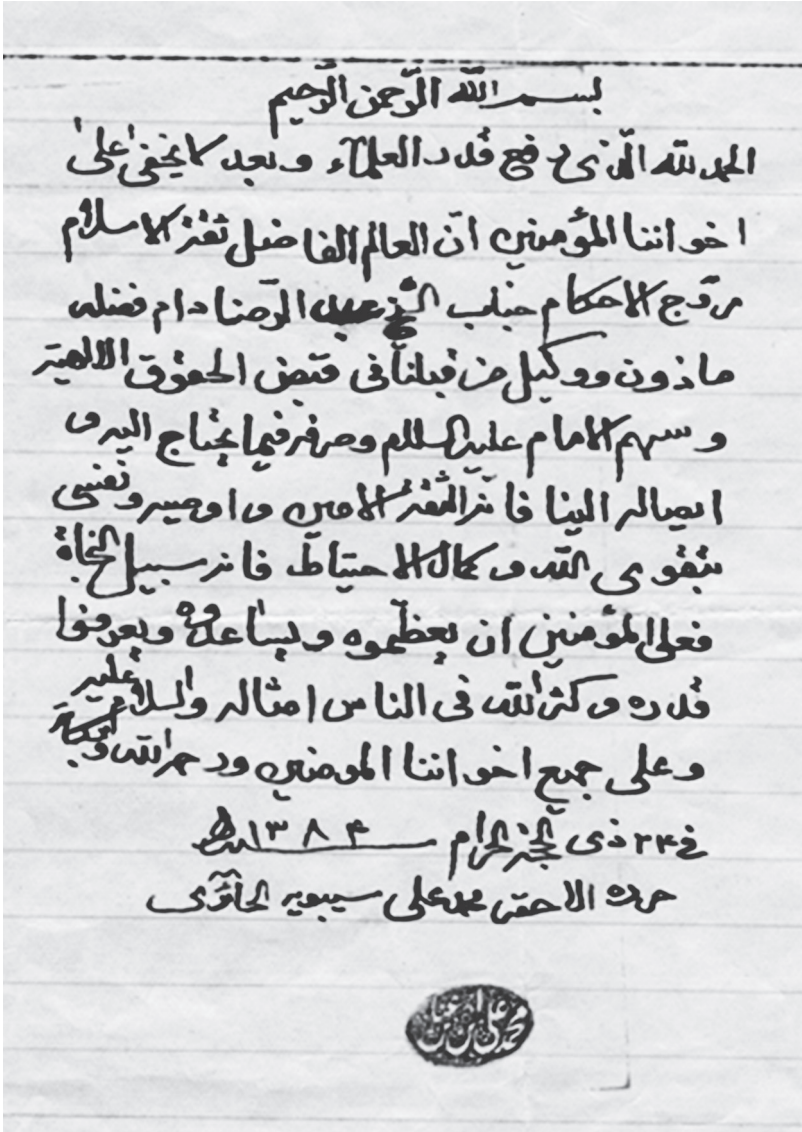 بسم الله الرّحمن الرّحيم
الحمد لله الّذى رفع قدر العلمآء وبعد لا يخفى على
اخواننا المؤمنين انّ العالم الفاضل ثقة الاسلام
مروّج الاحكام جناب الشّيخ عبد الرّضا دام فضله
ماذون ووكيل من قبلنا فى قبض الحقوق الالهية
و سهم الامام عليه السلام وصرفه فيما يحتاج اليه و
ايصاله الينا فانّه الثقة الامين و اوصيه ونفسى
بتقوى الله و كمال الاحتياط فانه سبيل النجاة
فعلى المؤمنين ان يعظّموه و يساعدوه ويعرفوا
قدره و كثر الله فى الناس امثاله والسلام عليه
و على جميع اخواننا المومنين ورحمة الله وبركاته
فى ٢٤ ذى الحجة الحرام ١٣٨٤
حرره الاحقر محمد على سيبويه الحائرى